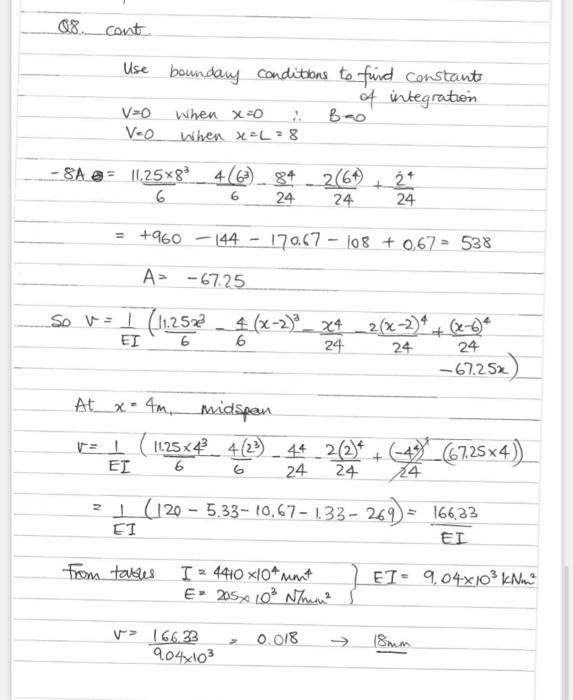 Q8. cont.
Use boundary conditions to find constants
of integration
V=0 when x=0 ∴ B=0
V=0 when x=L=8
-8A = 11.25×8³/6 - 4(6³)/6 - 8⁴/24 - 2(6⁴)/24 + 2⁴/24
= +960 - 144 - 170.67 - 108 + 0.67 = 538
A = -67.25
So v = 1/EI (11.25x³/6 - 4/6 (x-2)³ - x⁴/24 - 2(x-2)⁴/24 + (x-6)⁴/24
-67.25x)
At x = 4m, midspan
v = 1/EI (11.25×4³/6 - 4(2³)/6 - 4⁴/24 - 2(2)⁴/24 + /24 - (67.25×4))
= 1/EI (120 - 5.33 - 10.67 - 1.33 - 269) = 166.33/EI
From tables I = 4410 ×10⁴ mm⁴ } EI = 9.04×10³ kNm²
E = 205×10³ N/mm²
v = 166.33/9.04×10³ = 0.018 → 18mm